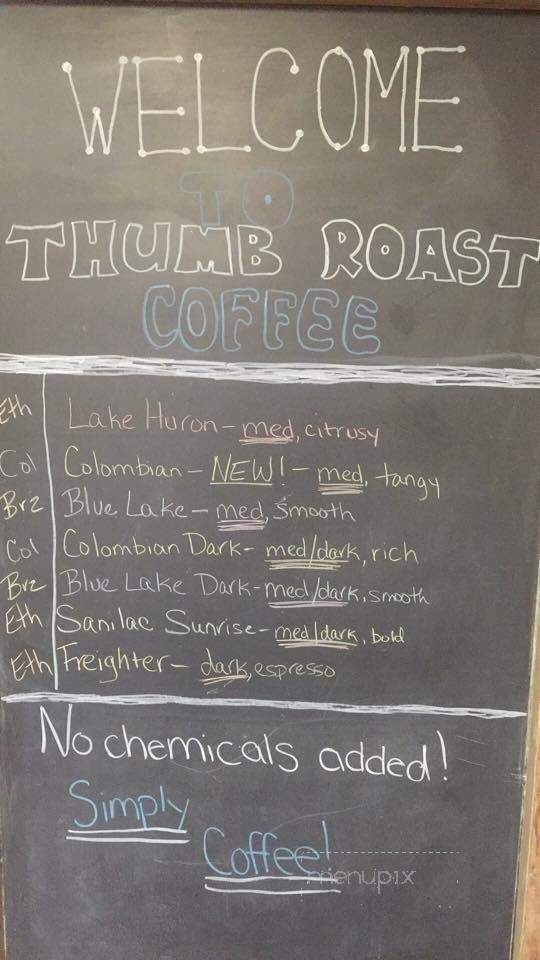 WELCOME
TO
THUMB ROAST
COFFEE
Eth Lake Huron - med, citrusy
Col Colombian - NEW! - med, tangy
Brz Blue Lake - med, smooth
Col Colombian Dark - med/dark, rich
Brz Blue Lake Dark - med/dark, smooth
Eth Sanilac Sunrise - med/dark, bold
Eth Freighter - dark, espresso
No chemicals added!
Simply
Coffee!
menupix